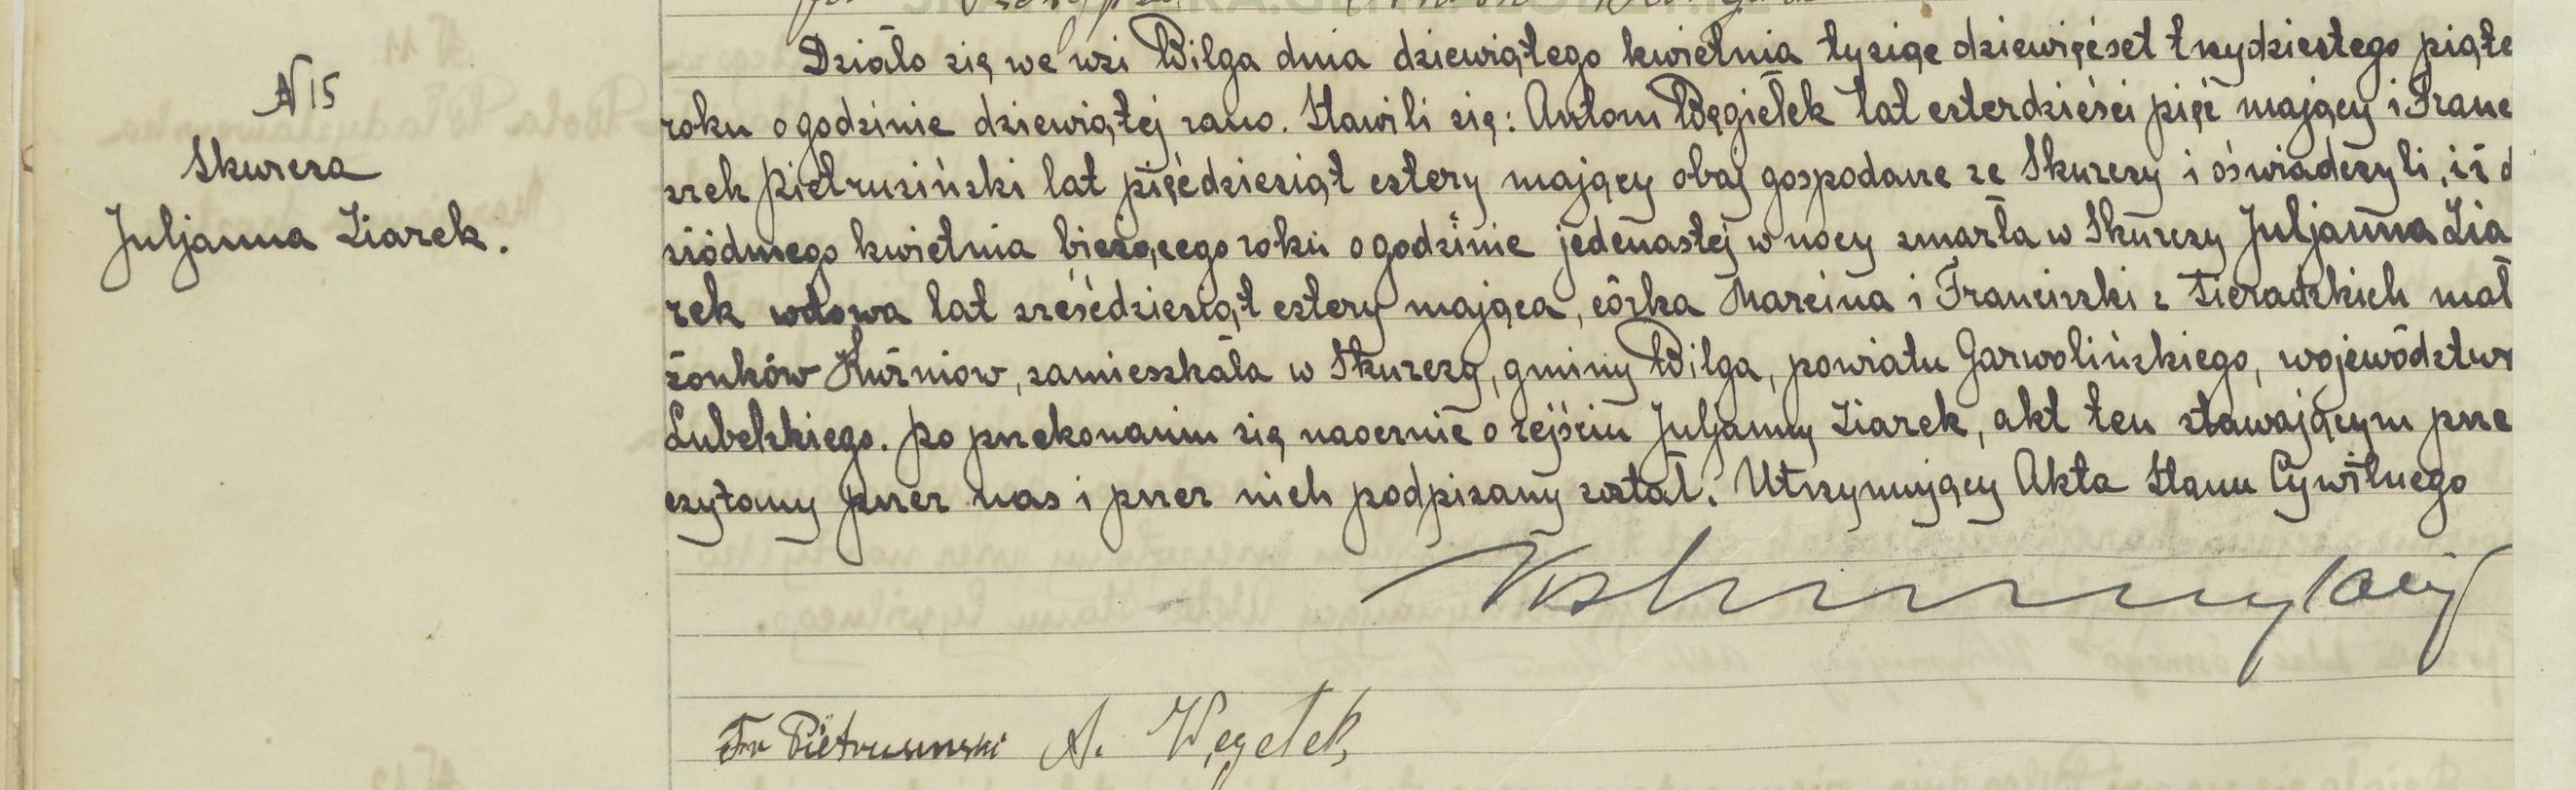 N 15
Skurcza
Juljanna Ziarek.
Działo się we wsi Wilga dnia dziewiątego kwietnia tysiąc dziewięćset trzydziestego piąte
roku o godzinie dziewiątej rano. Stawili się: Antoni Węgiełek lat czterdzieści pięć mający i Franc
szek Pietrusiński lat pięćdziesiąt cztery mający obaj gospodarze ze Skurczy i oświadczyli, iż d
siódmego kwietnia bieżącego roku o godzinie jedenastej w nocy zmarła w Skurczy Juljanna Zia
rek wdowa lat sześćdziesiąt cztery mająca, córka Marcina i Franciszki z Sieradzkich mał
żonków Kuźniow, zamieszkała w Skurczy, gminy Wilga, powiatu Garwolińskiego, województw
Lubelskiego. Po przekonaniu się naocznie o zejściu Juljanny Ziarek, akt ten stawającym prze
czytany przez nas i przez nich podpisany został. Utrzymujący Akta Stanu Cywilnego
Fr Pietrusinski A. Węgełek